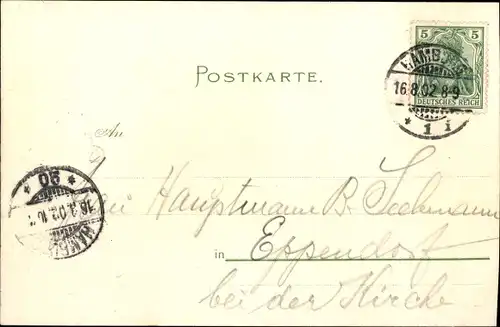 5 5
DEUTSCHES REICH
HAMBURG
16.8.02.8-9
* 1 i
POSTKARTE.
An
Hauptmann B. Seelemann
in Eppendorf
bei der Kirche
* 06 *
16.8.02.10
HAMBURG